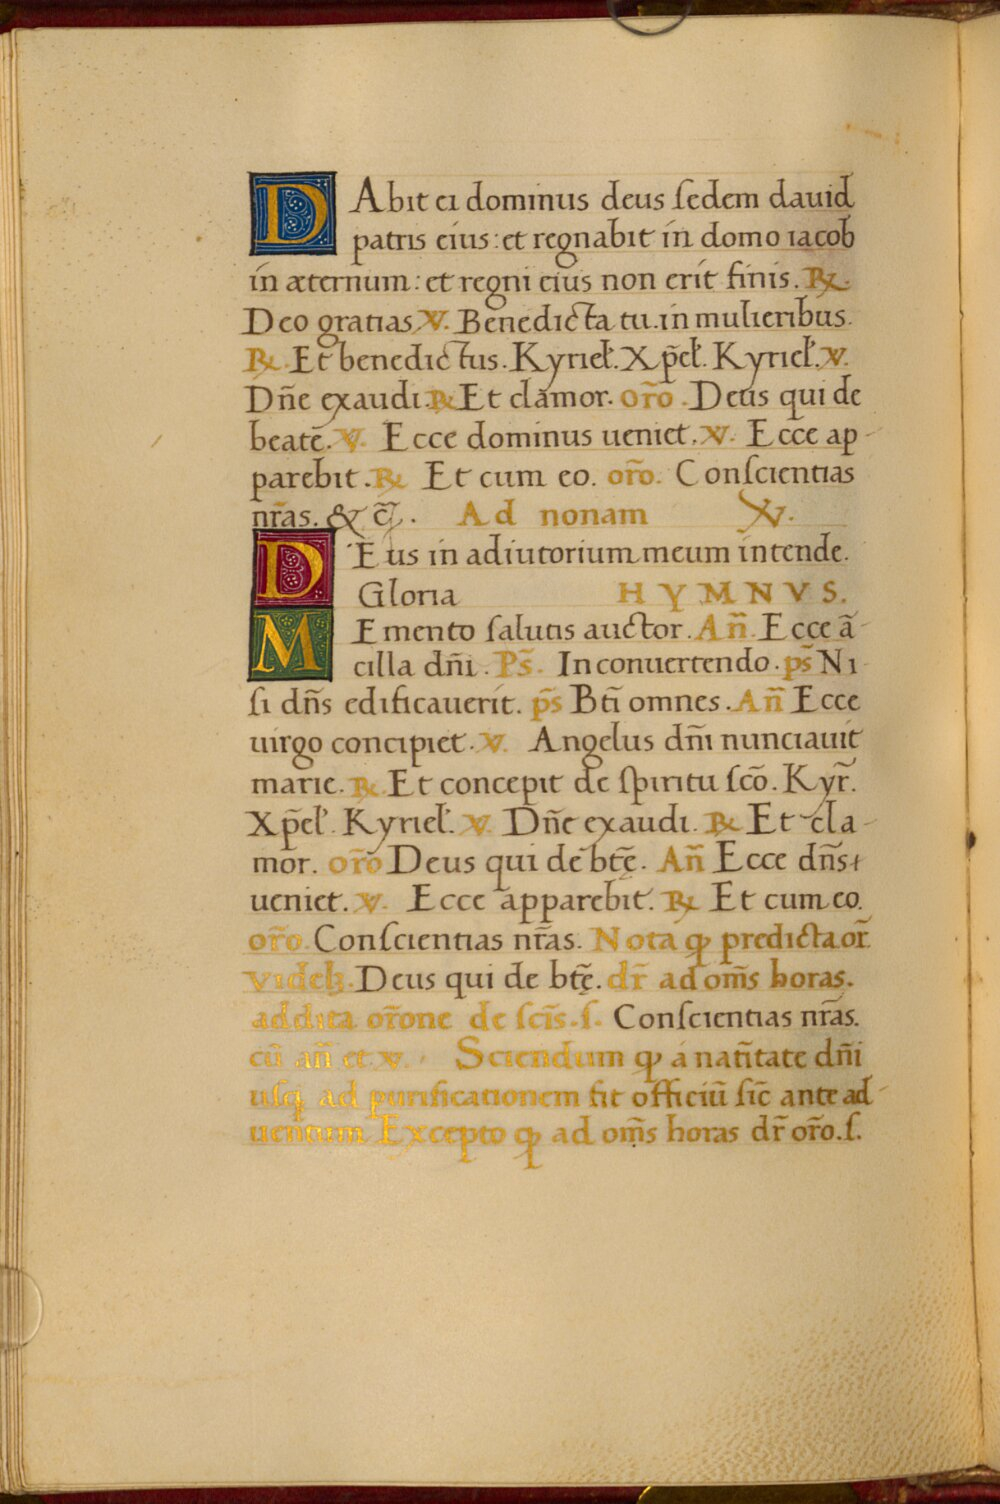 DAbit ei dominus deus ſedem dauid
patris eius: et regnabit in domo iacob
in æternum: et regni eius non erit finis. ℟.
Deo gratias ℣. Benedicta tu in mulieribus.
℟. Et benedictus. Kyriel̃. Xp̃el̃. Kyriel̃. ℣.
Dñe exaudi. ℟ Et clamor. or̃o. Deus qui de
beatę. ℣. Ecce dominus ueniet. ℣. Ecce ap-
parebit. ℟ Et cum eo. or̃o. Conſcientias
nr̃as. & c̃. Ad nonam ℣.
DEus in adiutorium meum intende.
Gloria HYMNVS.
MEmento ſalutis auctor. Añ. Ecce ã-
cilla dñi. Ps̃. In conuertendo. ps̃ Ni-
ſi dñs edificauerit. p̃s Bti̅ omnes. Añ Ecce
uirgo concipiet. ℣. Angelus dñi nunciauit
marie. ℟. Et concepit de ſpiritu ſcõ. Kyr̃.
Xp̃el̃. Kyriel̃. ℣. Dñe exaudi. ℟ Et cla-
mor. or̃o Deus qui de bt̃ę. Añ Ecce dñs
ueniet. ℣. Ecce apparebit. ℟ Et cum eo.
or̃o. Conſcientias nr̃as. Nota ꝙ predicta or̃.
Videlꝫ. Deus qui de bt̃ę. dr̃ ad om̃s horas.
addita or̃one de ſcĩs. ſ. Conſcientias nr̃as.
cũ añ et ℣. Sciendum ꝙ a natĩtate dñi
uſqꝫ ad purificationem fit officiũ ſic̃ ante ad-
uentum Excepto ꝙ ad om̃s horas dr̃ or̃o. ſ.